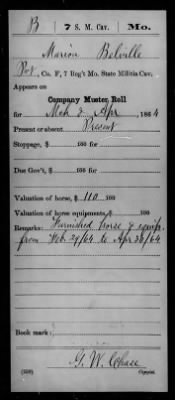 B | 7 S. M. Cav. | Mo.
Marion Belville
Pvt, Co. F, 7 Reg't Mo. State Militia Cav.
Appears on
Company Muster Roll
for Mch & Apr, 1864
Present or absent Present
Stoppage, $ 100 for
Due Gov't, $ 100 for
Valuation of horse, $ 110 100
Valuation of horse equipments, $ 100
Remarks: Furnished horse & equip.
from Feb 29/64 to Apr 30/64
Book mark:
G. W. Chase
Copyist.